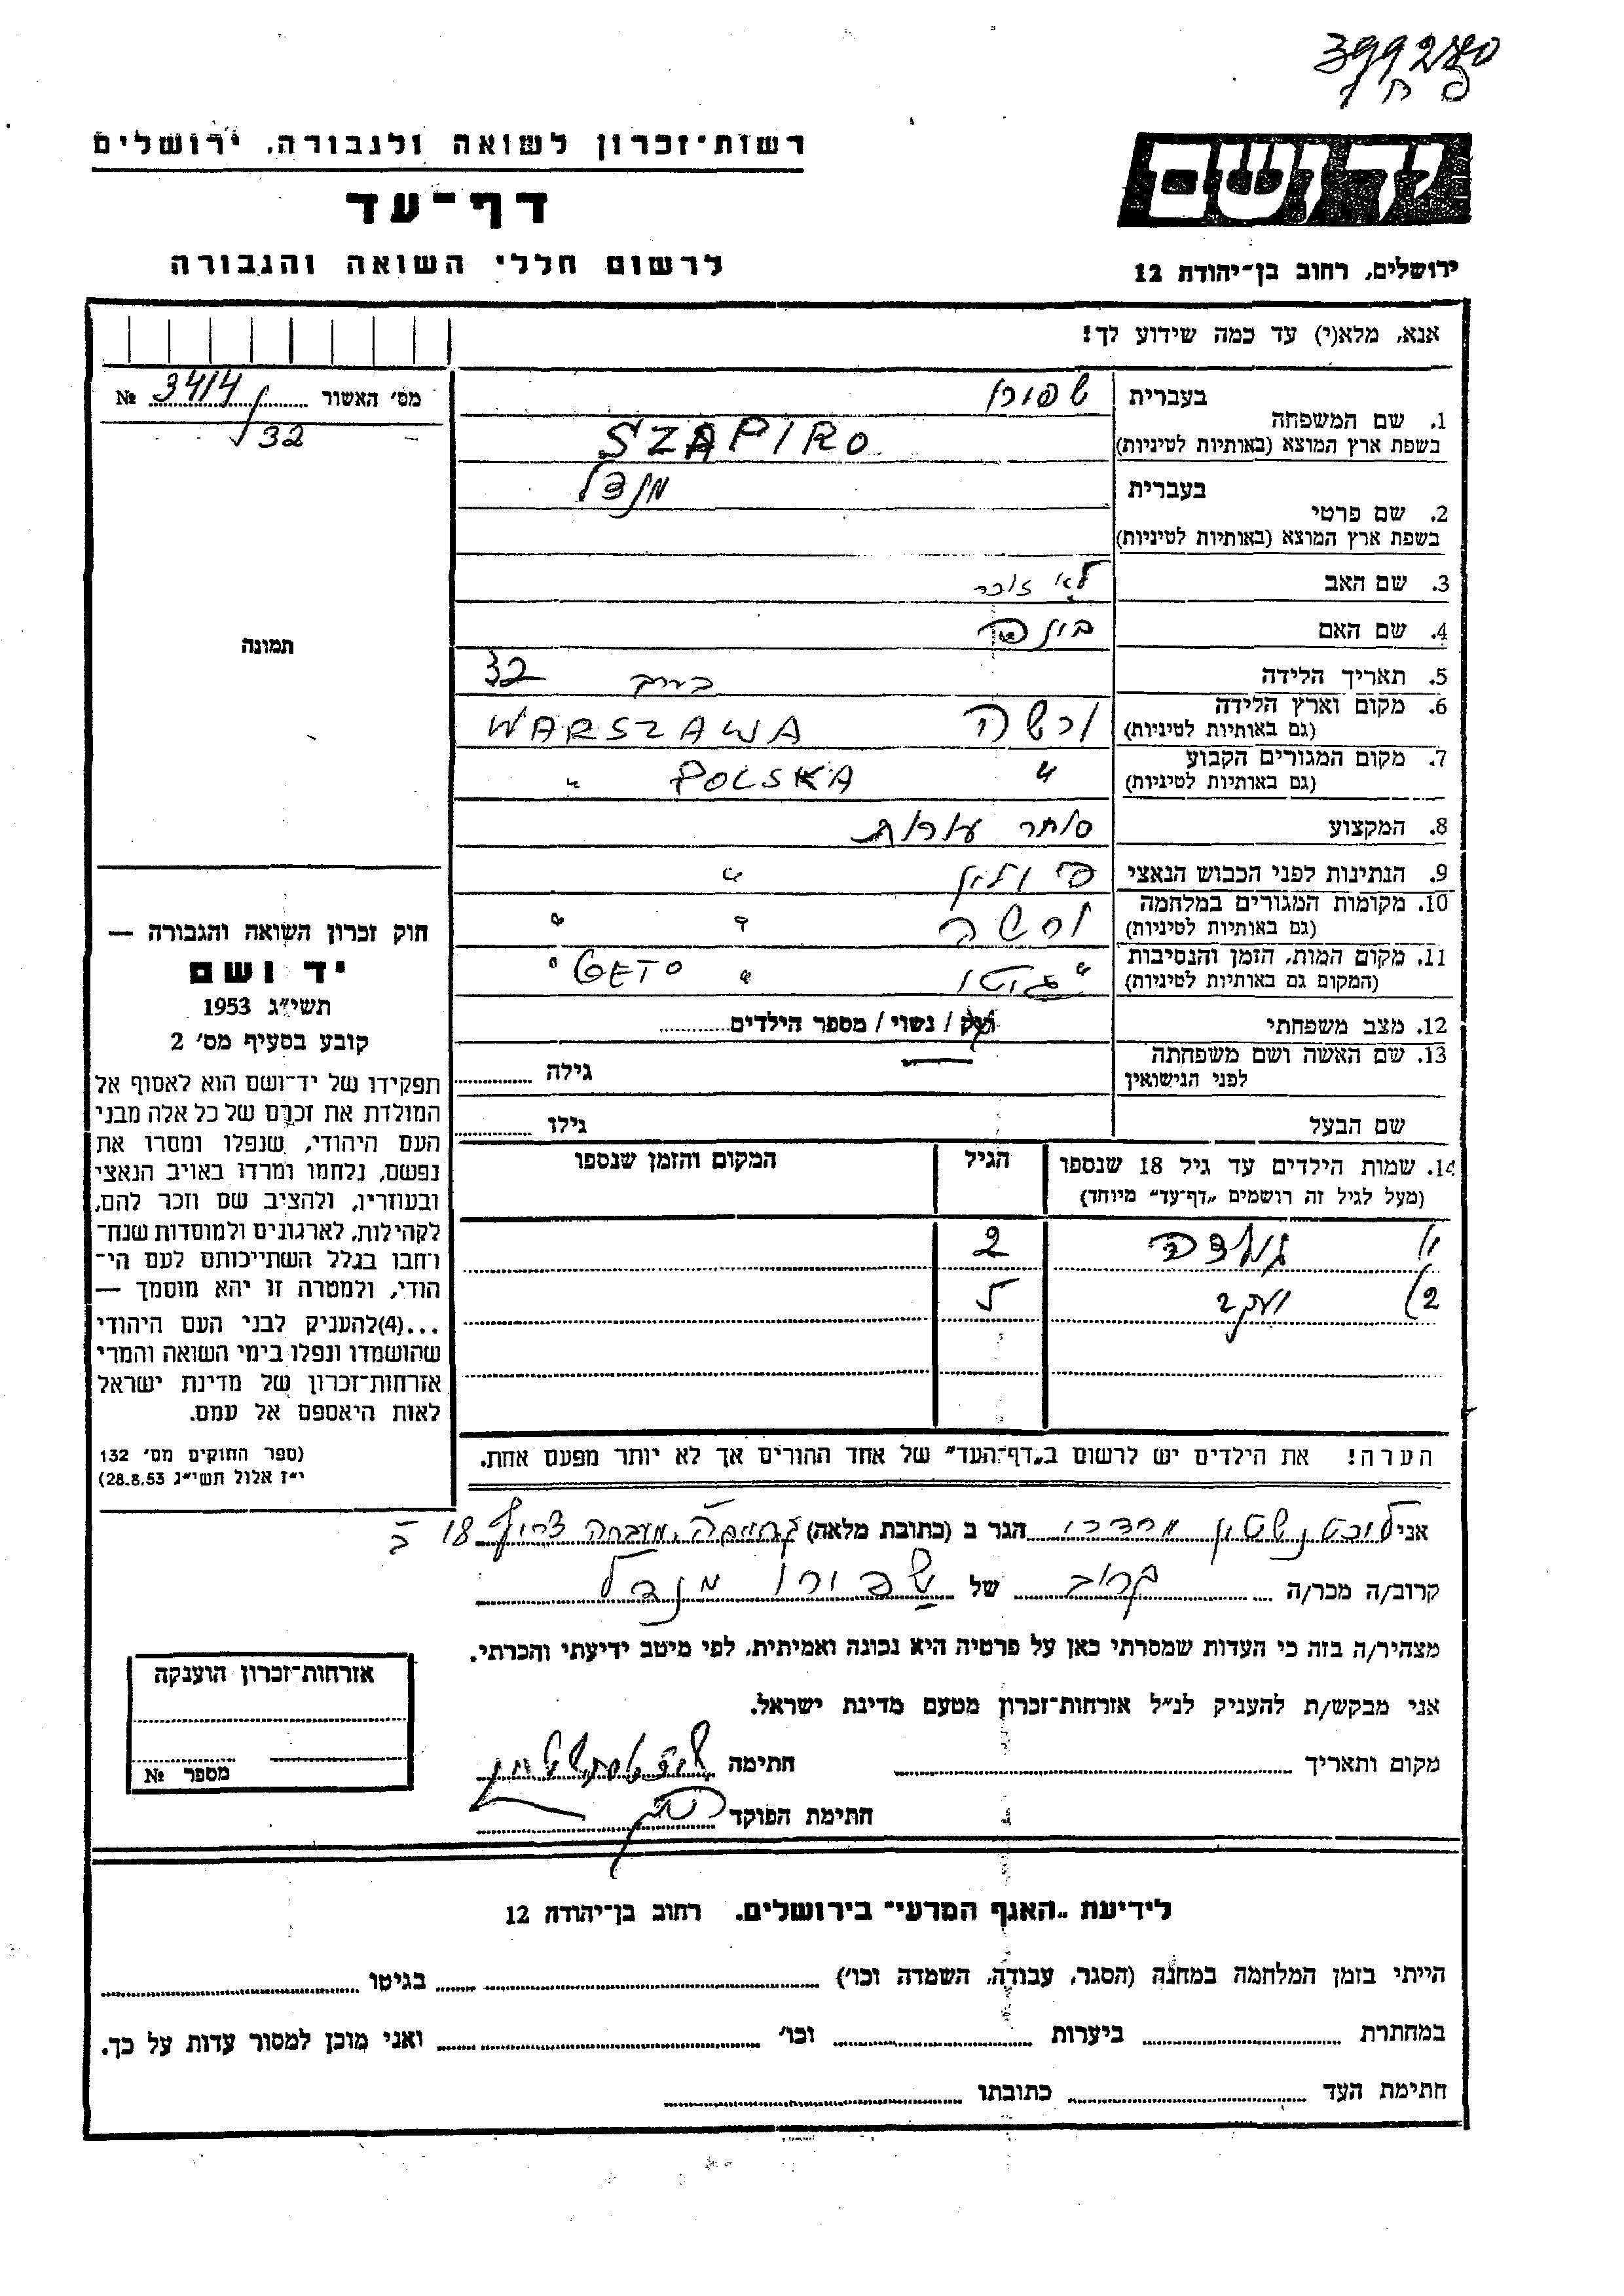 399280
רשות־זכרון לשואה ולגבורה, ירושלים
דף־עד
לרשום חללי השואה והגבורה
יד ושם
ירושלים, רחוב בן־יהודה 12
אנא, מלא(י) עד כמה שידוע לך!
מס׳ האשור 3414 №
32
1. שם המשפחה
בעברית שפירו
בשפת ארץ המוצא (באותיות לטיניות) SZAPIRO
2. שם פרטי
בעברית מנדל
בשפת ארץ המוצא (באותיות לטיניות)
3. שם האב לא זוכר
4. שם האם
5. תאריך הלידה בערך 32
6. מקום וארץ הלידה ורשה WARSZAWA
(גם באותיות לטיניות)
7. מקום המגורים הקבוע " POLSKA "
(גם באותיות לטיניות)
8. המקצוע סוחר עורות
9. הנתינות לפני הכבוש הנאצי פולין "
10. מקומות המגורים במלחמה ורשה " "
(גם באותיות לטיניות)
11. מקום המות, הזמן והנסיבות " גיטו " GETO "
(המקום גם באותיות לטיניות)
12. מצב משפחתי רוק / נשוי / מספר הילדים
13. שם האשה ושם משפחתה
לפני הנישואין גילה
שם הבעל גילו
תמונה
חוק זכרון השואה והגבורה —
יד ושם
תשי״ג 1953
קובע בסעיף מס׳ 2
תפקידו של יד־ושם הוא לאסוף אל
המולדת את זכרם של כל אלה מבני
העם היהודי, שנפלו ומסרו את
נפשם, נלחמו ומרדו באויב הנאצי
ובעוזריו, ולהציב שם וזכר להם,
לקהילות, לארגונים ולמוסדות שנח־
רחבו בגלל השתייכותם לעם הי־
הודי, ולמטרה זו יהא מוסמך —
...(4)להעניק לבני העם היהודי
שהושמדו ונפלו בימי השואה והמרי
אזרחות־זכרון של מדינת ישראל
לאות היאספם אל עמם.
(ספר החוקים מס׳ 132
י״ז אלול תשי״ג 28.8.53)
14. שמות הילדים עד גיל 18 שנספו הגיל המקום והזמן שנספו
(מעל לגיל זה רושמים „דף־עד״ מיוחד)
1) 2
2) יעקב 5
הערה! את הילדים יש לרשום ב„דף־העד״ של אחד ההורים אך לא יותר מפעם אחת.
אני ליכטנשטין מרדכי הגר ב (כתובת מלאה) מעברה צריף 18 ב
קרוב/ה מכר/ה קרוב של שפירו מנדל
מצהיר/ה בזה כי העדות שמסרתי כאן על פרטיה היא נכונה ואמיתית, לפי מיטב ידיעתי והכרתי.
אני מבקש/ת להעניק לנ״ל אזרחות־זכרון מטעם מדינת ישראל.
מקום ותאריך חתימה
חתימת הפוקד
אזרחות־זכרון הוענקה
מספר №
לידיעת „האגף המדעי״ בירושלים. רחוב בן־יהודה 12
הייתי בזמן המלחמה במחנה (הסגר, עבודה, השמדה וכו׳) בגיטו
במחתרת ביערות וכו׳ ואני מוכן למסור עדות על כך.
חתימת העד כתובתו